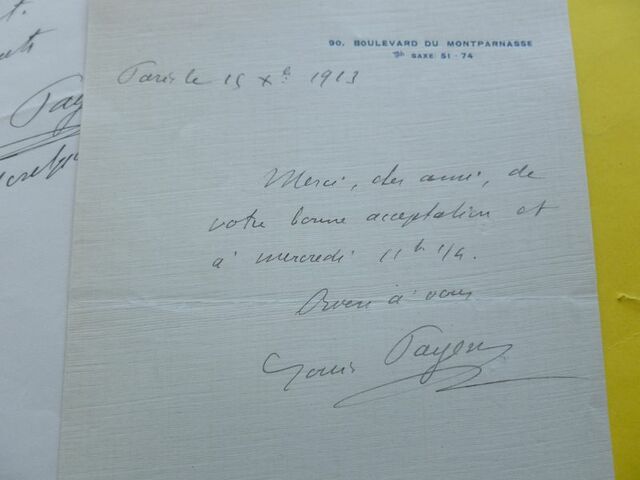 t.
Pay
90, BOULEVARD DU MONTPARNASSE
Tph SAXE 51-74
Paris le 15 Xb 1913
Merci, cher ami, de
votre bonne acceptation et
à mercredi 11h 1/4.
à vous
Louis Payen